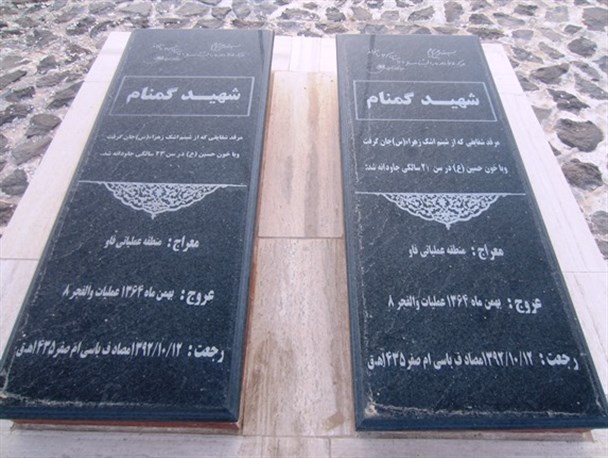 شهید گمنام
مرقد شقایقی که از شبنم اشک زهراء(س)جان گرفت
وبا خون حسین (ع) در سن ۲۱ سالگی جاودانه شد:
معراج: منطقه عملیاتی فاو
عروج: بهمن ماه ۱۳۶۴ عملیات والفجر ۸
رجعت: ۱۳۹۲/۱۰/۱۲ مصادف باسی ام صفر ۱۴۳۵هـق
شهید گمنام
مرقد شقایقی که از شبنم اشک زهراء(س)جان گرفت
وبا خون حسین (ع) در سن ۲۳ سالگی جاودانه شد:
معراج: منطقه عملیاتی فاو
عروج: بهمن ماه ۱۳۶۴ عملیات والفجر ۸
رجعت: ۱۳۹۲/۱۰/۱۲ مصادف باسی ام صفر ۱۴۳۵هـق